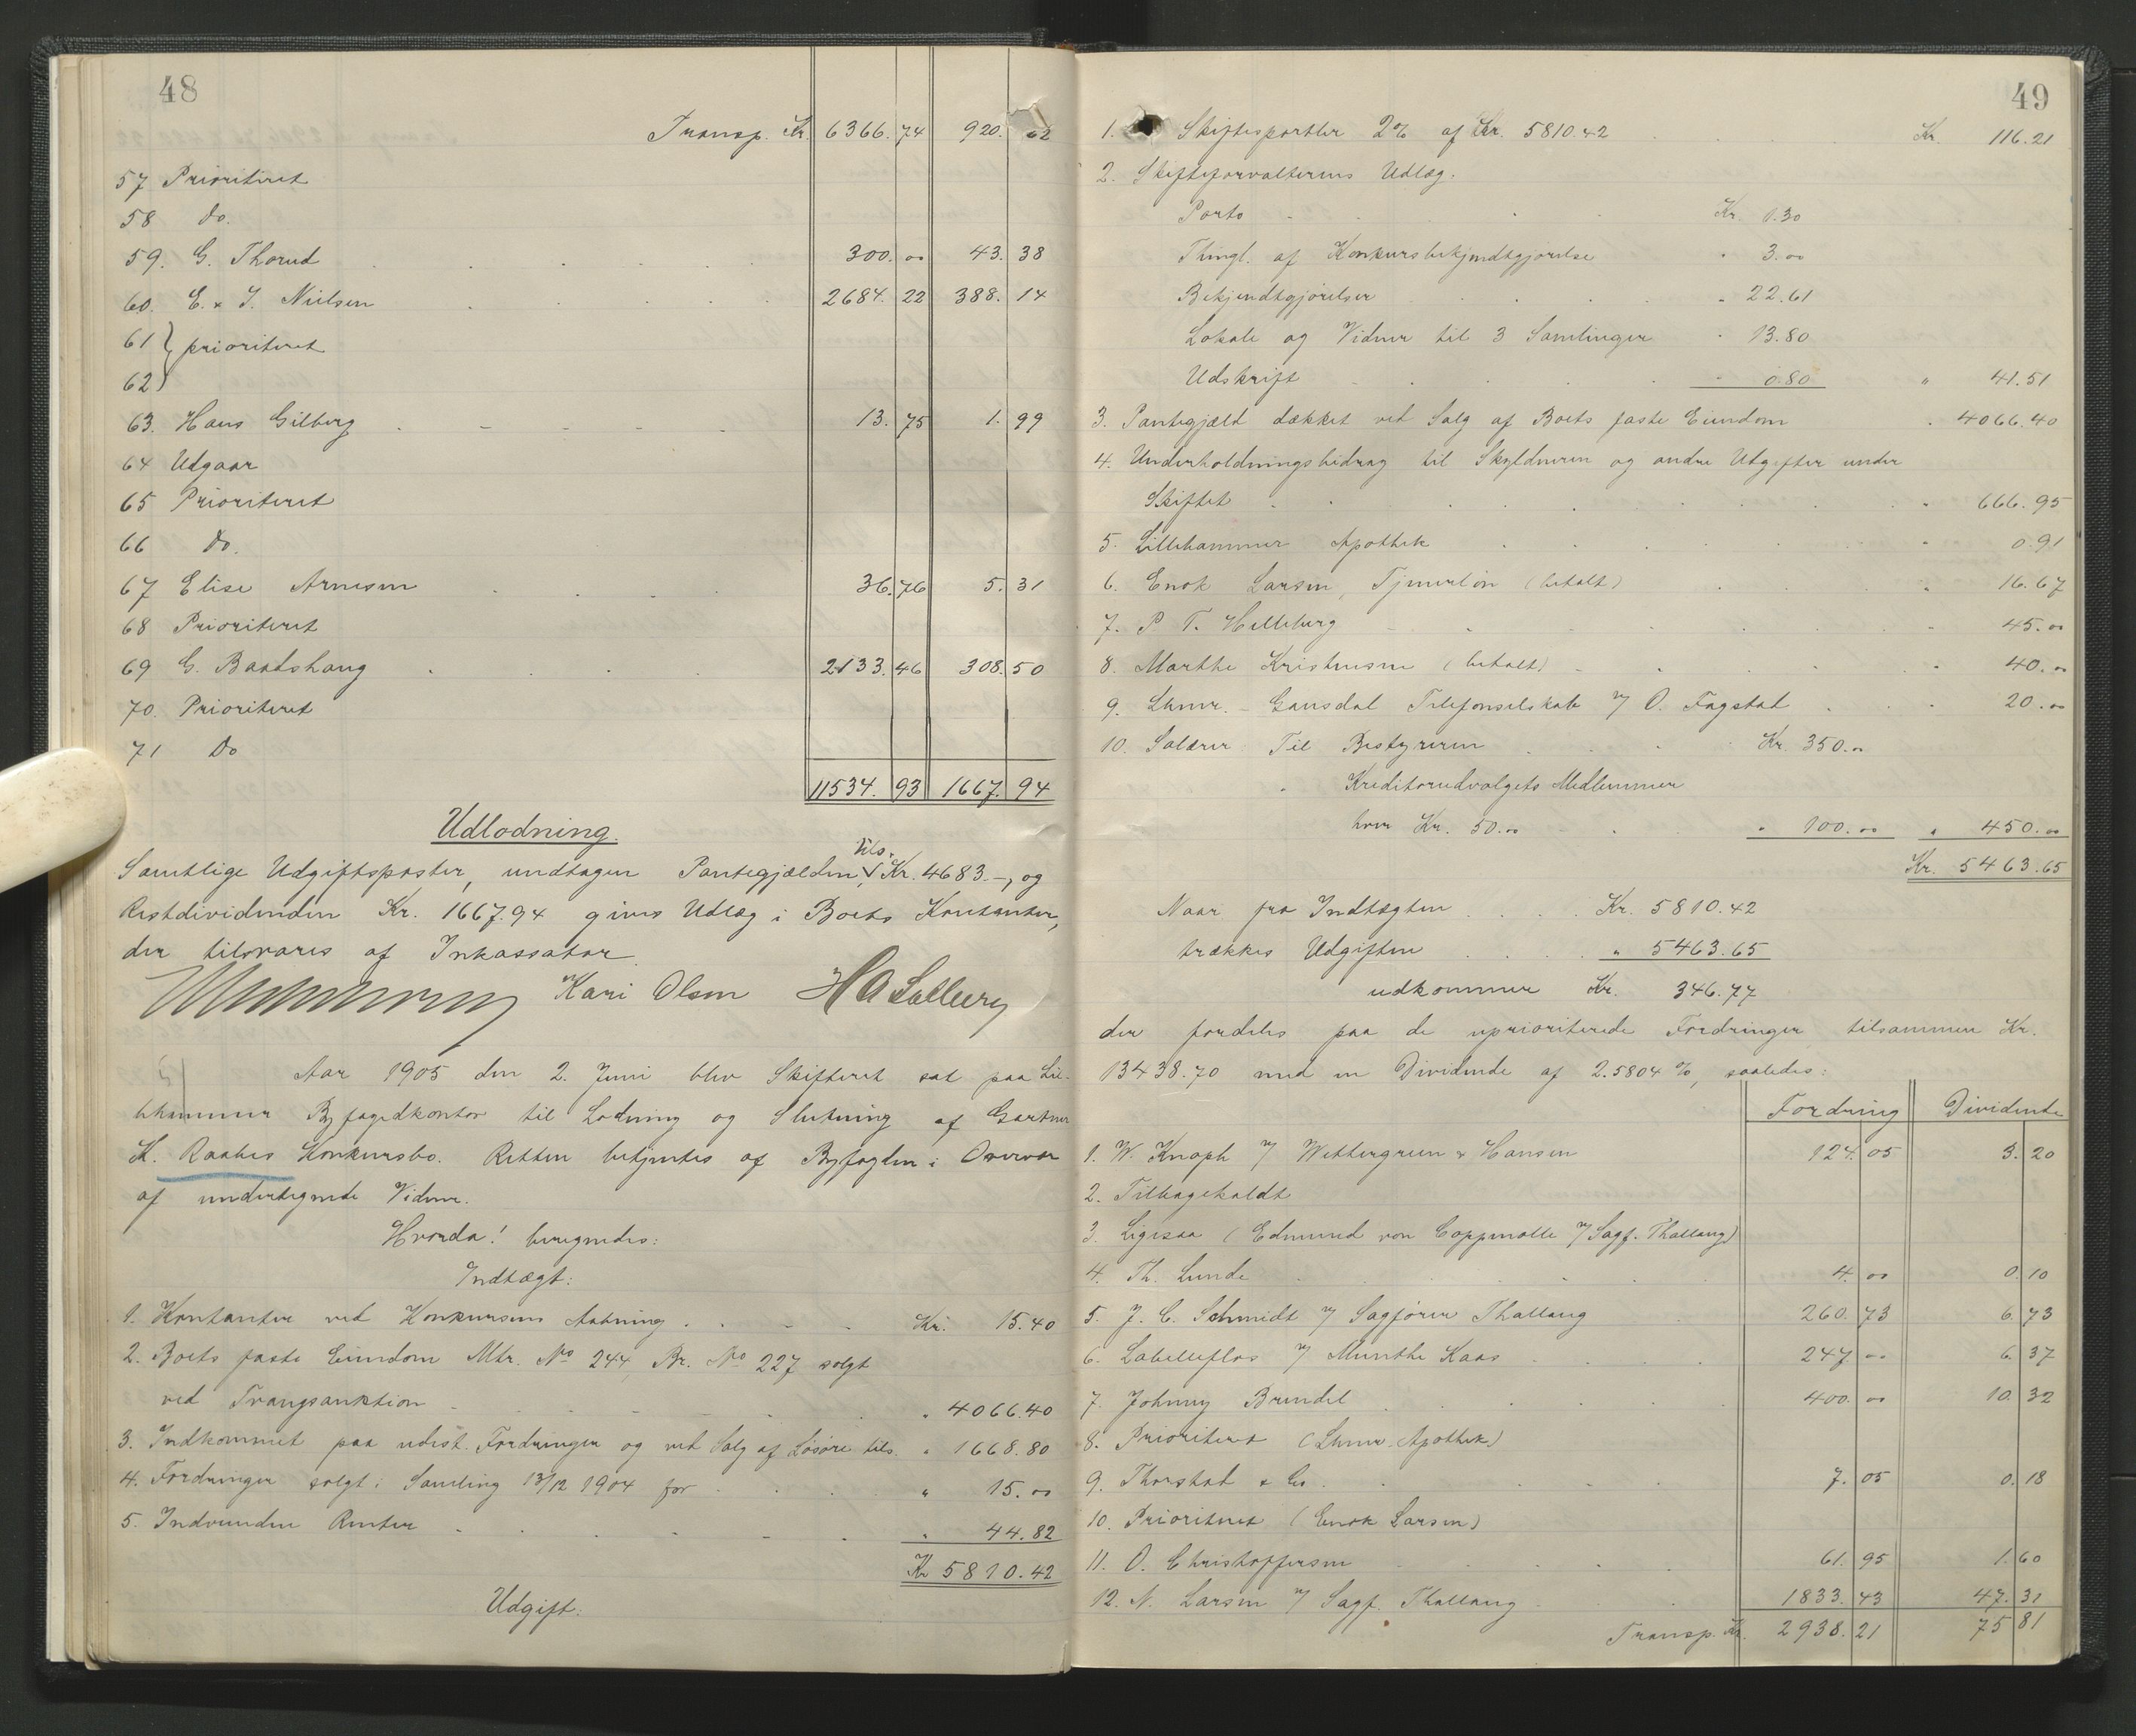 48
Transp. Kr. 6366.74 920.62
57 Prioriteret
58 do.
59. G. Thorud 300.00 43.38
60. E. & J. Nielsen 2684.22 388.14
61 } prioriteret
62 }
63. Hans Gilberg 13.75 1.99
64 Udgaar
65 Prioriteret
66 do.
67 Elise Arnesen 36.76 5.31
68 Prioriteret
69 G. Baadshaug 2133.46 308.50
70. Prioriteret
71 Do
11534.93 1667.94
Udlodning.
Samtlige Udgiftsposter, undtagen Pantegjælden, tils. Kr. 4683.–, og
Restdividenden Kr. 1667.94 gives Udlæg i Boets Kontanter,
der tilsvares af Inkassator.
Kari Olsen
Aar 1905 den 2. Juni blev Skifteret sat paa Lil-
lehammer Byfogedkontor til Lodning og Slutning af Gartner
K. Raabes Konkursbo. Retten betjentes af Byfogden i Overvær
af undertegnede Vidner.
Hvorda! beregnedes:
Indtægt:
1. Kontanter ved Konkursens Aabning Kr. 15.40
2. Boets faste Eiendom Mtr. No 244, Br. No 227 solgt
ved Tvangsauktion " 4066.40
3. Indkommet paa udest. Fordringer og ved Salg af Løsøre tils. " 1668.80
4. Fordringer solgt i Samling 13/12 1904 for " 15.00
5. Indvundne Renter " 44.82
Kr 5810.42
Udgift:
49
1. Skiftesportler 2% af Kr. 5810.42 Kr. 116.21
2. Skifteforvalterens Udlæg.
Porto Kr. 1.30
Thingl. af Konkursbekjendtgjørelse " 3.00
Bekjendtgjørelser " 22.61
Lokale og Vidner til 3 Samlinger " 13.80
Udskrift " 0.80 " 41.51
3. Pantegjæld dækket ved Salg af Boets faste Eiendom " 4066.40
4. Underholdningsbidrag til Skyldneren og andre Udgifter under
Skiftet " 666.95
5. Lillehammer Apothek " 0.91
6. Enok Larsen, Tjenerløn (betalt) " 16.67
7. P. T. Helleberg " 45.00
8. Marthe Kristensen (betalt) " 40.00
9. Lhmr. - Gausdal Telefonselskab v/ O. Fagstad " 20.00
10. Salærer: Til Bestyreren Kr. 350.00
" Kreditorudvalgets Medlemmer
hver Kr. 50.00 " 100.00 " 450.00
Kr. 5463.65
Naar fra Indtægten Kr. 5810.42
trækkes Udgiften " 5463.65
udkommer Kr. 346.77
der fordeles paa de uprioriterede Fordringer tilsammen Kr.
13438.70 med en Dividende af 2.5804 %, saaledes:
Fordring Dividende
1. W. Knoph v/ Wettergreen & Hansen 124.05 3.20
2. Tilbagekaldt
3. Ligesaa (Edmund von Coppenolle v/ Sagf. Thallaug)
4. Th. Lunde 4.00 0.10
5. J. C. Schmidt v/ Sagfører Thallaug 260.73 6.73
6. Labelleflos v/ Munthe Kaas 247.00 6.37
7. Johnny Brendel 400.00 10.32
8. Prioriteret (Lhmr. Apothek)
9. Thorstad & Co. 7.05 0.18
10. Prioriteret (Enok Larsen)
11. O. Christoffersen 61.95 1.60
12. N. Larsen v/ Sagf. Thallaug 1833.43 47.31
Transp. Kr. 2938.21 75.81